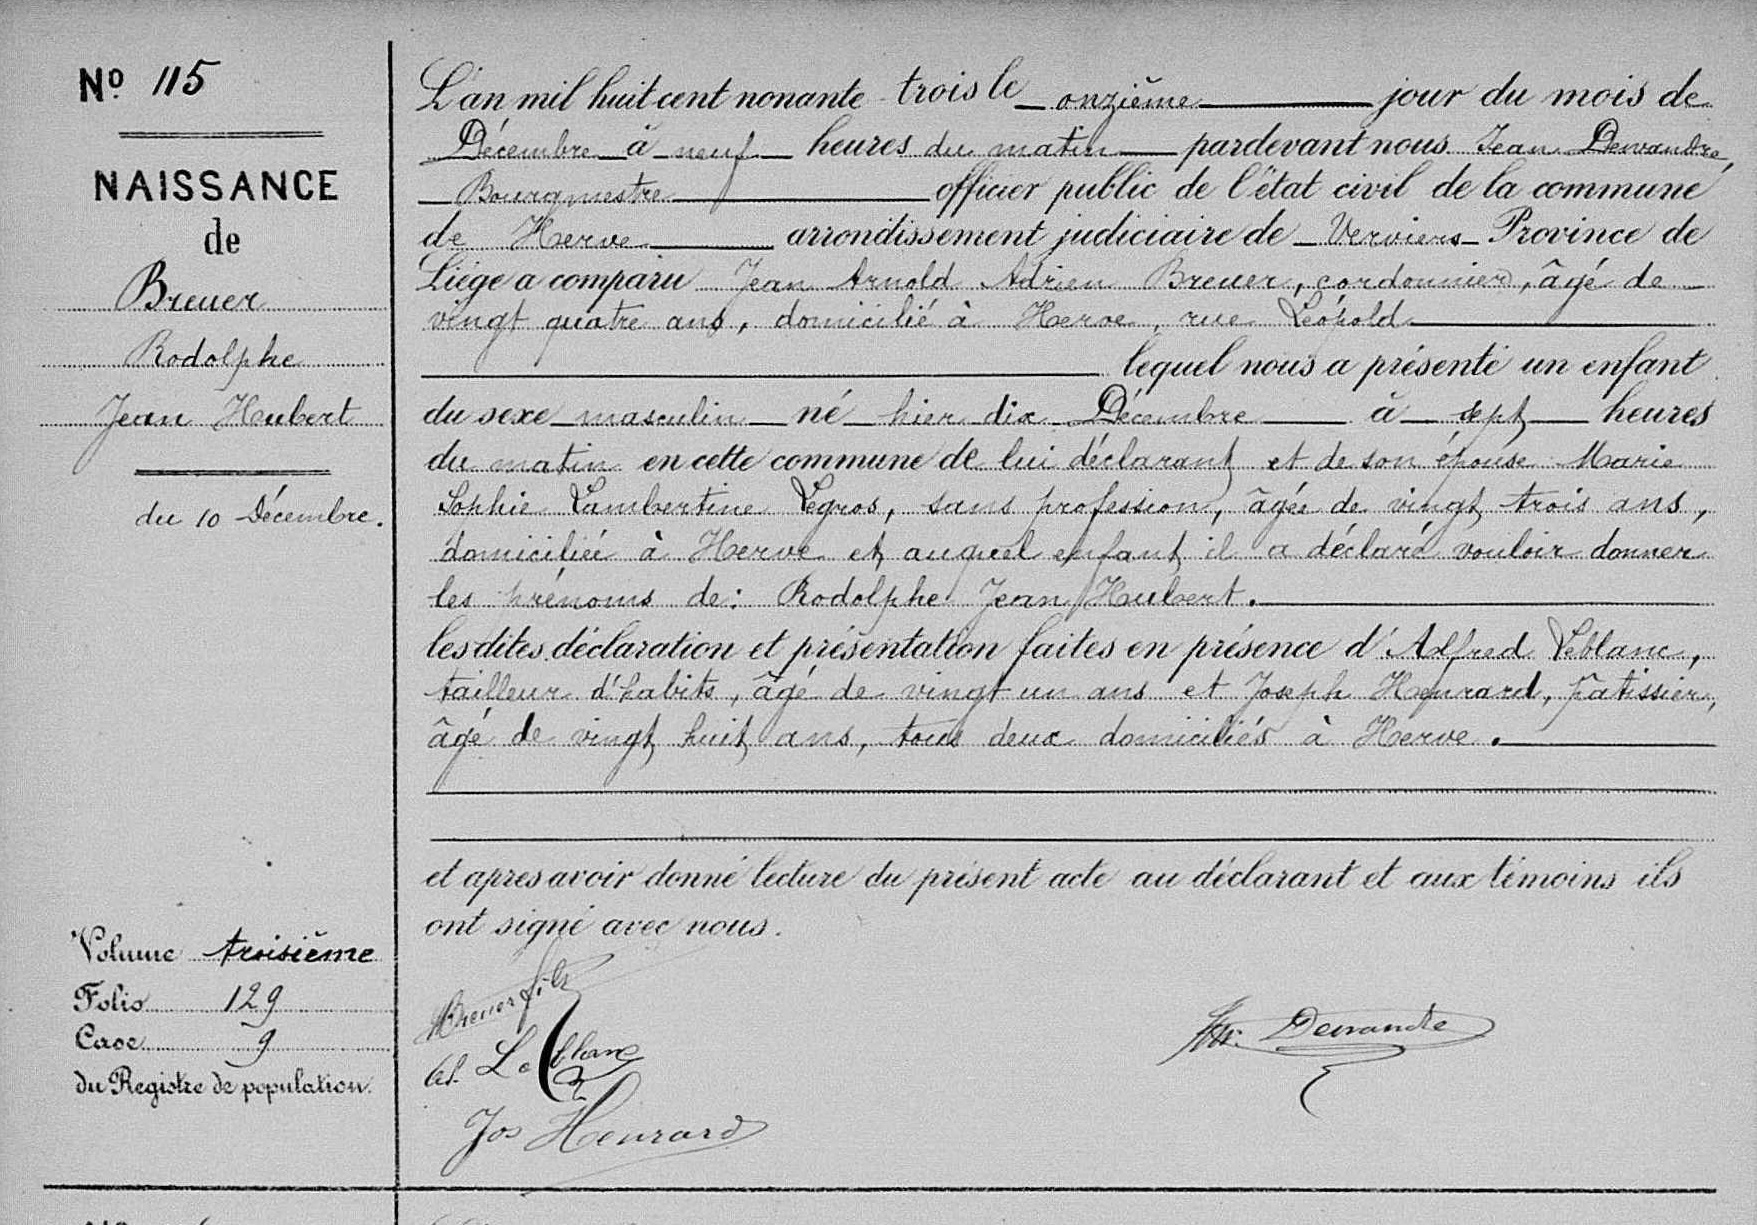 Nº 115
NAISSANCE
de
Breuer
Rodolphe
Jean Hubert
du 10 Décembre.
Volume troisième
Folio 129
Case 9
du Registre de population.
L'an mil huit cent nonante trois le onzième jour du mois de
Décembre à neuf heures du matin pardevant nous Jean Dewandre,
Bourgmestre officier public de l'état civil de la commune
de Herve arrondissement judiciaire de Verviers Province de
Liège a comparu Jean Arnold Adrien Breuer, cordonnier, âgé de
vingt quatre ans, domicilié à Herve, rue Léopold
lequel nous a présenté un enfant
du sexe masculin né hier dix Décembre à sept heures
du matin en cette commune de lui déclarant et de son épouse Marie
Sophie Lambertine Legros, sans profession, âgée de vingt trois ans,
domiciliée à Herve et auquel enfant il a déclaré vouloir donner
les prénoms de : Rodolphe Jean Hubert.
lesdites déclaration et présentation faites en présence d'Alfred Leblanc,
tailleur d'habits, âgé de vingt un ans et Joseph Henrard, patissier,
âgé de vingt huit ans, tous deux domiciliés à Herve.
et après avoir donné lecture du présent acte au déclarant et aux témoins ils
ont signé avec nous.
Breuer fils
Al. Leblanc
Jos Henrard
Dewandre